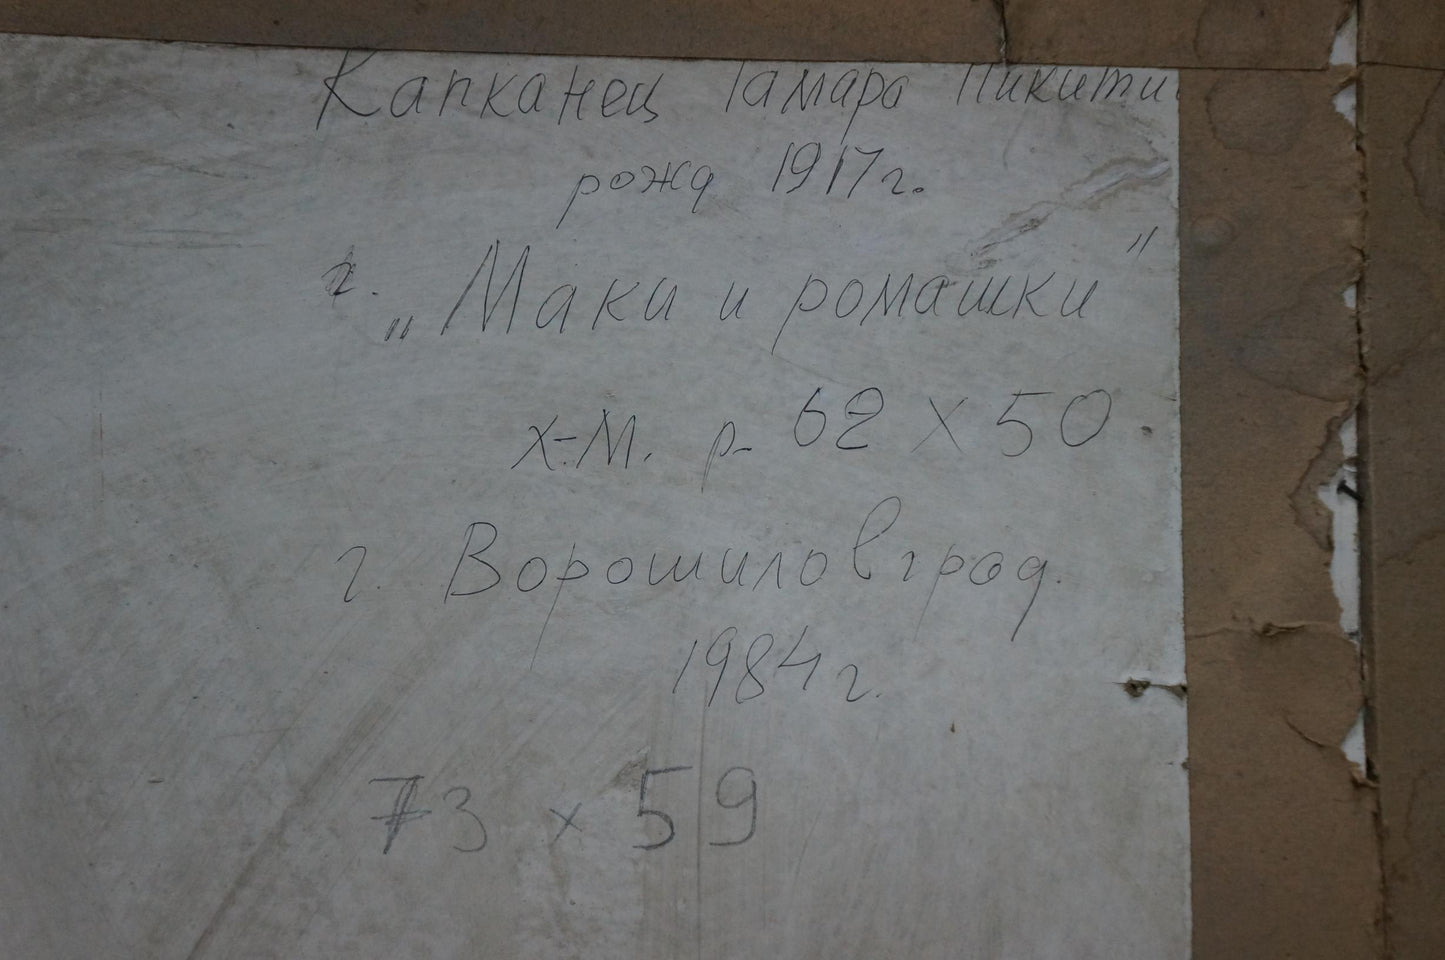 Капканец Тамара Никити
рожд 1917г.
г.
„Маки и ромашки”
х.-м. р- 62 х 50
г. Ворошиловград.
1984г.
73 х 59